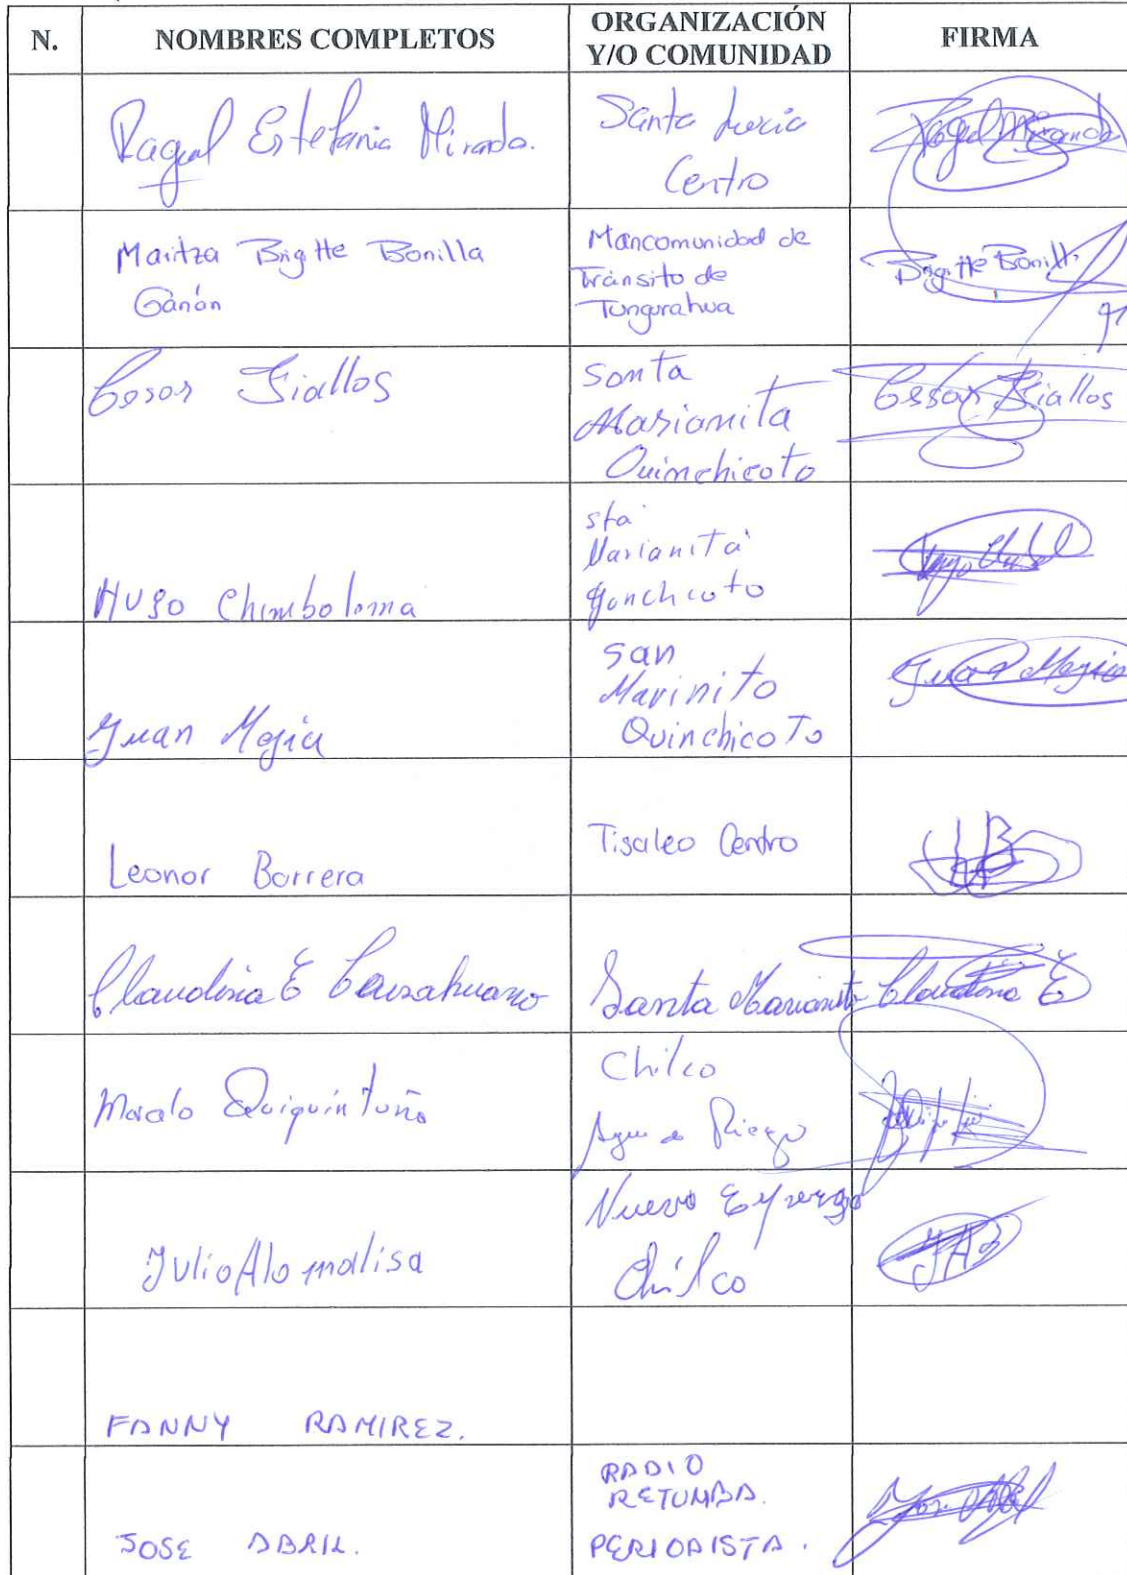 N. NOMBRES COMPLETOS ORGANIZACIÓN Y/O COMUNIDAD FIRMA
Raquel Estefania Miranda.
Santa Lucia
Centro
Raquel Miranda
Maritza Brigitte Bonilla
Gánán
Mancomunidad de
Tránsito de
Tungurahua
Brigitte Bonilla
Cesar Fiallos
Santa
Marianita
Quinchicoto
Cesar Fiallos
Hugo Chimbolema
sta
Marianita
Juan Mejia
San
Marinito
Quinchicoto
Juan Mejia
Leonor Barrera
Tisaleo Centro
Claudina E
Santa Marianita
Claudina E
Chilco
Riego
Julio Alomaliza
Nuevo
Chilco
JAB
FANNY RAMIREZ.
JOSE ABRIL.
RADIO
RETUMBA.
PERIODISTA.